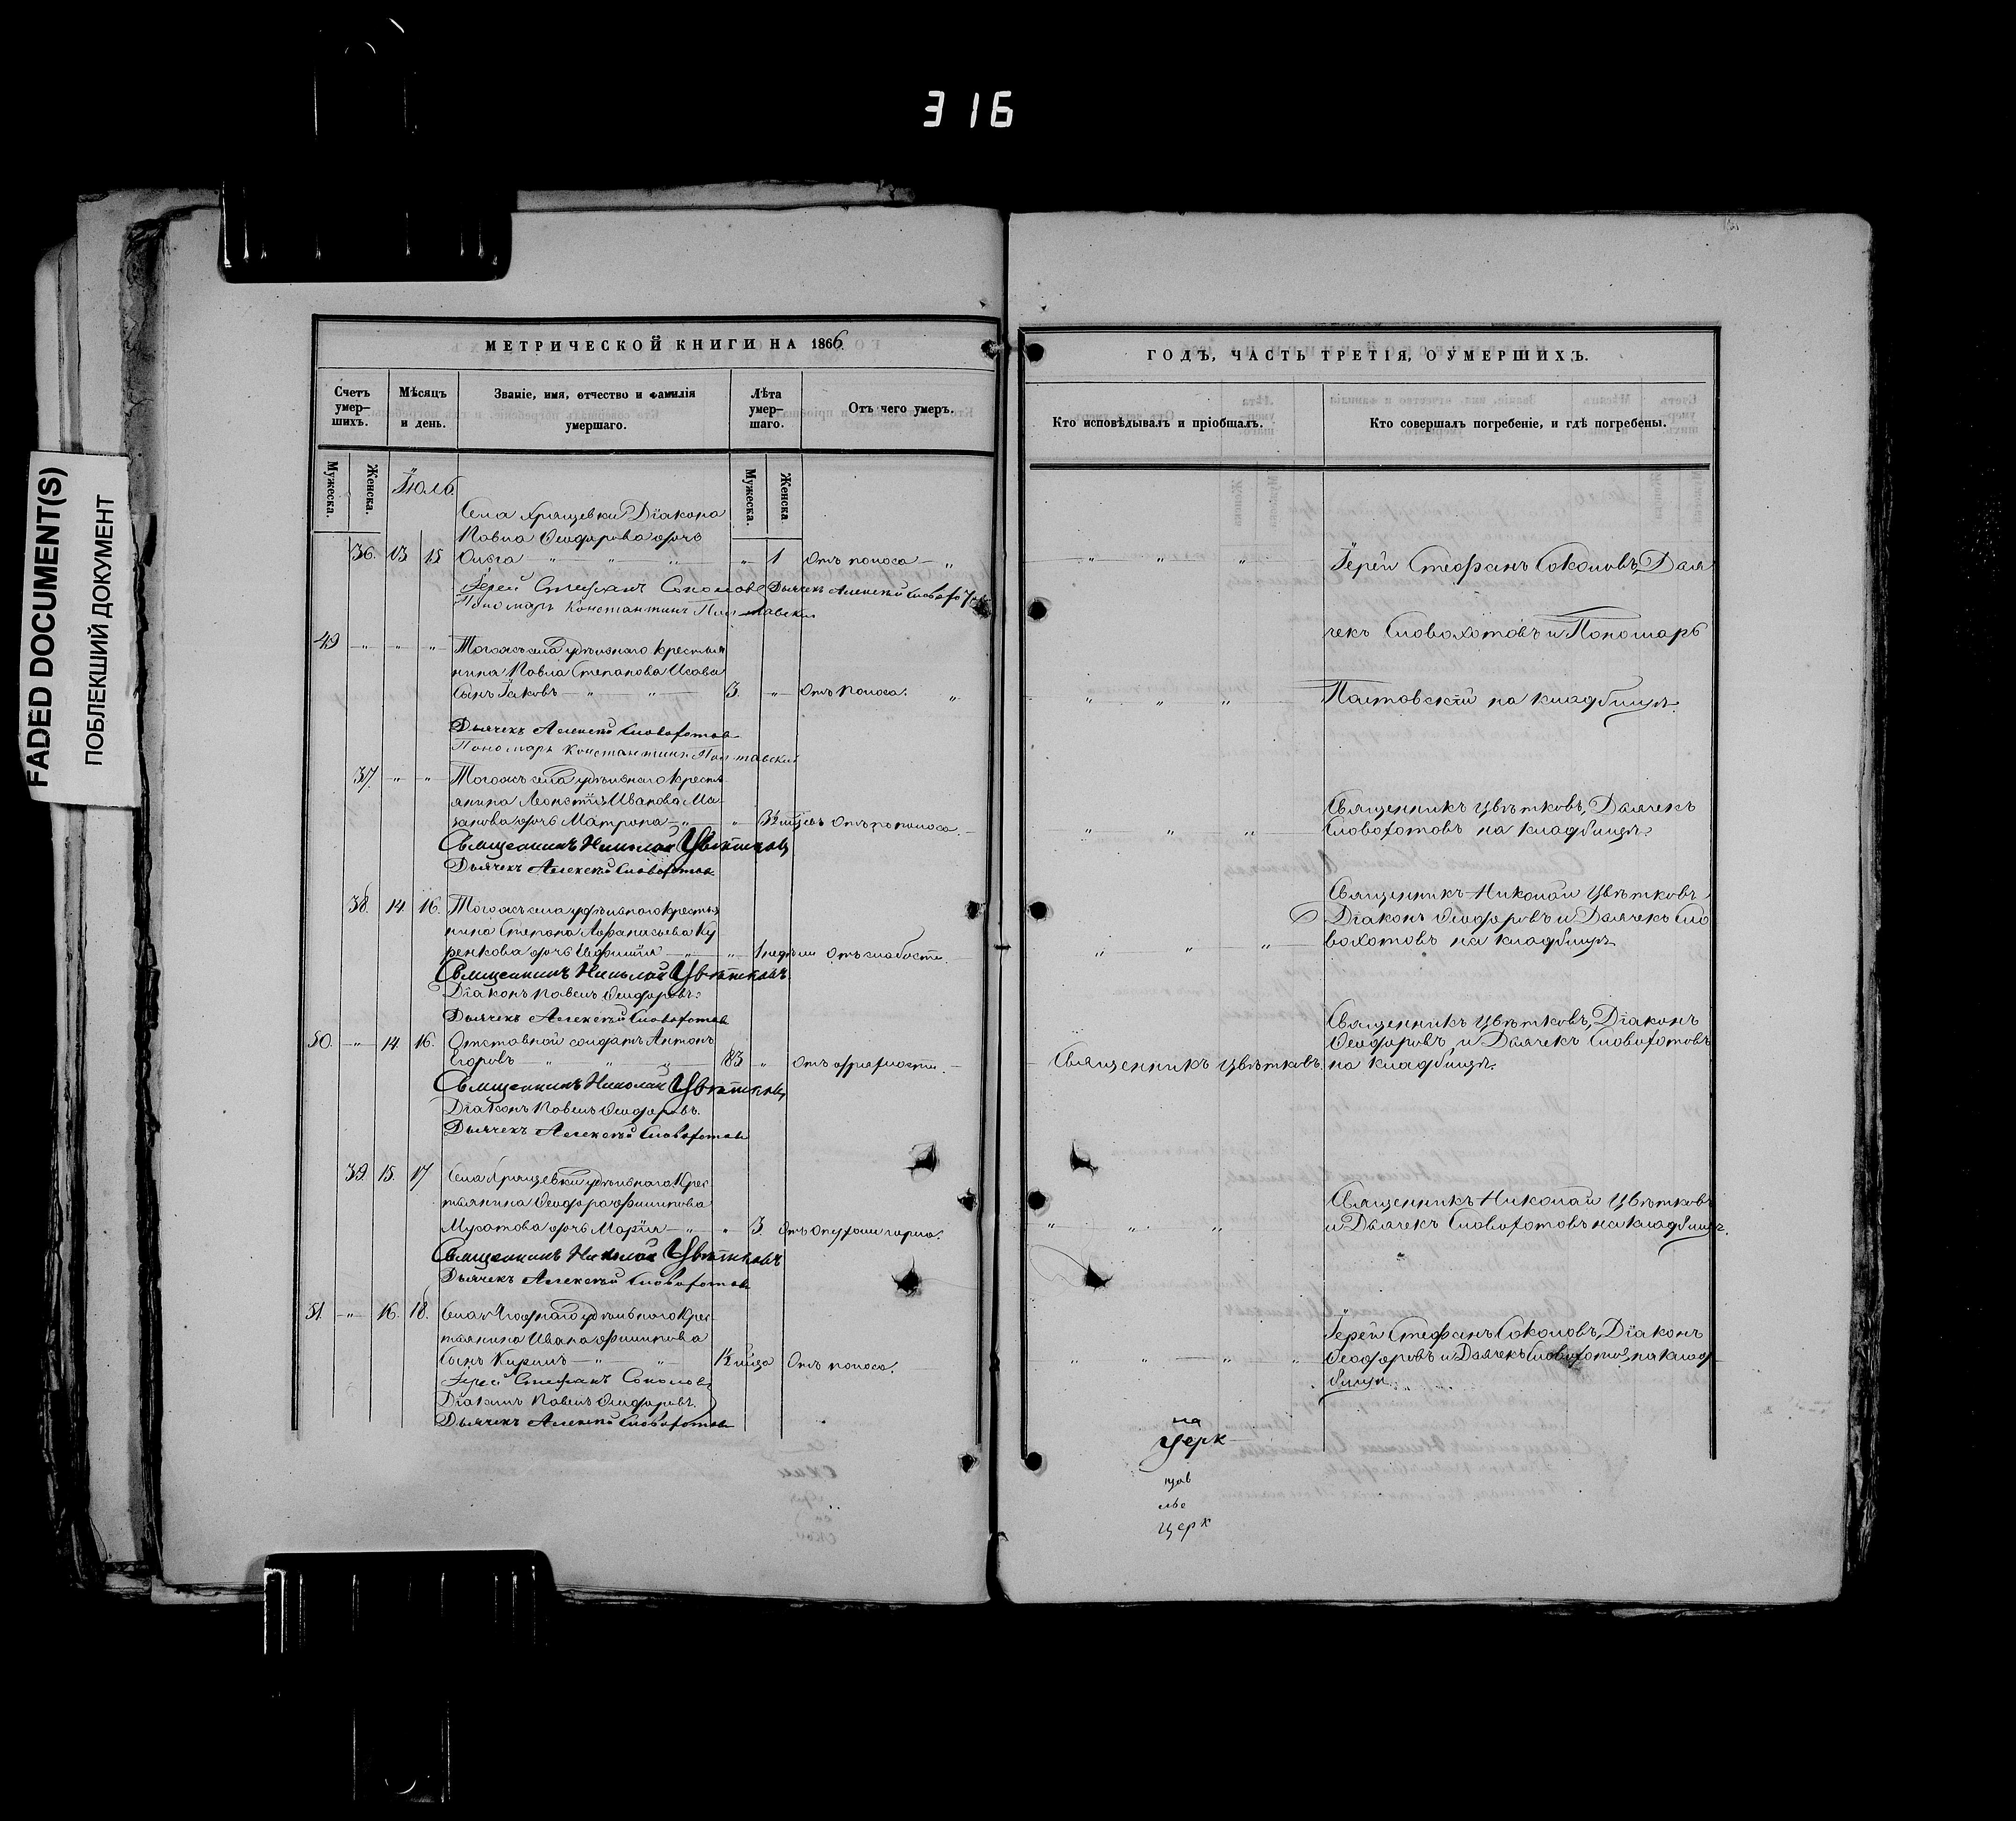 316
FADED DOCUMENT(S)
ПОБЛЕКШИЙ ДОКУМЕНТ
МЕТРИЧЕСКОЙ КНИГИ НА 1866
Счетъ умер–шихъ.
Мѣсяцъ и день.
Званіе, имя, отчество и фамилія умершаго.
Лѣта умер–шаго.
Отъ чего умеръ.
Мужеска.
Женска.
Іюль
Мужеска.
Женска.
Села Хрящевки Діакона
Павла Ѳеодорова дочь
36. 13 15 Ольга " " " " 1 Отъ поноса "
Іерей Стефанъ Соколовъ Дьячекъ Алексѣй Словохотовъ
Пономарь Константинъ Полтавскій
49 " " " Тогожъ села удѣльнаго крестья
нина Павла Степанова Исаева
сынъ Іаковъ " " 3. " Отъ поноса. "
Дьячекъ Алексѣй Словохотовъ
Пономарь Константинъ Полтавскій
37. " " Тогожъ села удѣльнаго кресть
янина Леонтія Иванова Ма
занова дочь Матрона " " 3½ мѣсяц Отъ поноса.
Священникъ Николай Цвѣтковъ
Дьячекъ Алексѣй Словохотовъ
38. 14. 16. Тогожъ села удѣльнаго крестья
нина Степана Афанасьева Ку
ренкова дочь " " 1 недѣли Отъ слабости.
Священникъ Николай Цвѣтковъ
Діаконъ Павелъ Ѳеодоровъ.
Дьячекъ Алексѣй Словохотовъ
50. " 14 16. Отставной солдатъ Антонъ
Егоровъ " " 83 " Отъ дряхлости.
Священникъ Николай Цвѣтковъ
Діаконъ Павелъ Ѳеодоровъ.
Дьячекъ Алексѣй Словохотовъ
39. 15. 17 Села Хрящевки удѣльнаго Крес
тьянина Ѳеодора Филипова
Муратова дочь Марія " " 3. Отъ опухоли горла.
Священникъ Николай Цвѣтковъ
Дьячекъ Алексѣй Словохотовъ
51. " 16. 18. Села удѣльнаго Крес
тьянина Ивана Филипова
сынъ Кирилъ " " 1½ мѣца Отъ поноса.
Іерей Стефанъ Соколовъ
Діаконъ Павелъ Ѳеодоровъ.
Дьячекъ Алексѣй Словохотовъ
ГОДЪ, ЧАСТЬ ТРЕТІЯ, О УМЕРШИХЪ.
Кто исповѣдывалъ и пріобщалъ.
Кто совершалъ погребеніе, и гдѣ погребены.
" " " Іерей Стефанъ Соколовъ, Дья
чекъ Словохотовъ и Пономарь
" " " Полтавскій на кладбищѣ.
Священникъ Цвѣтковъ, Дьячекъ
" " " Словохотовъ на кладбищѣ.
Священникъ Николай Цвѣтковъ
Діаконъ Ѳеодоровъ и Дьячекъ Сло
" " " вохотовъ на кладбищѣ
Священникъ Цвѣтковъ, Діаконъ
Ѳеодоровъ и Дьячекъ Словохотовъ
Священникъ Цвѣтковъ. на кладбищѣ.
Священникъ Николай Цвѣтковъ
" " " и Дьячекъ Словохотовъ на кладбищѣ.
Іерей Стефанъ Соколовъ, Діаконъ
" " " " Ѳеодоровъ и Дьячекъ Словохотовъ на клад
бищѣ.
на
Церк
щав
лье
церк